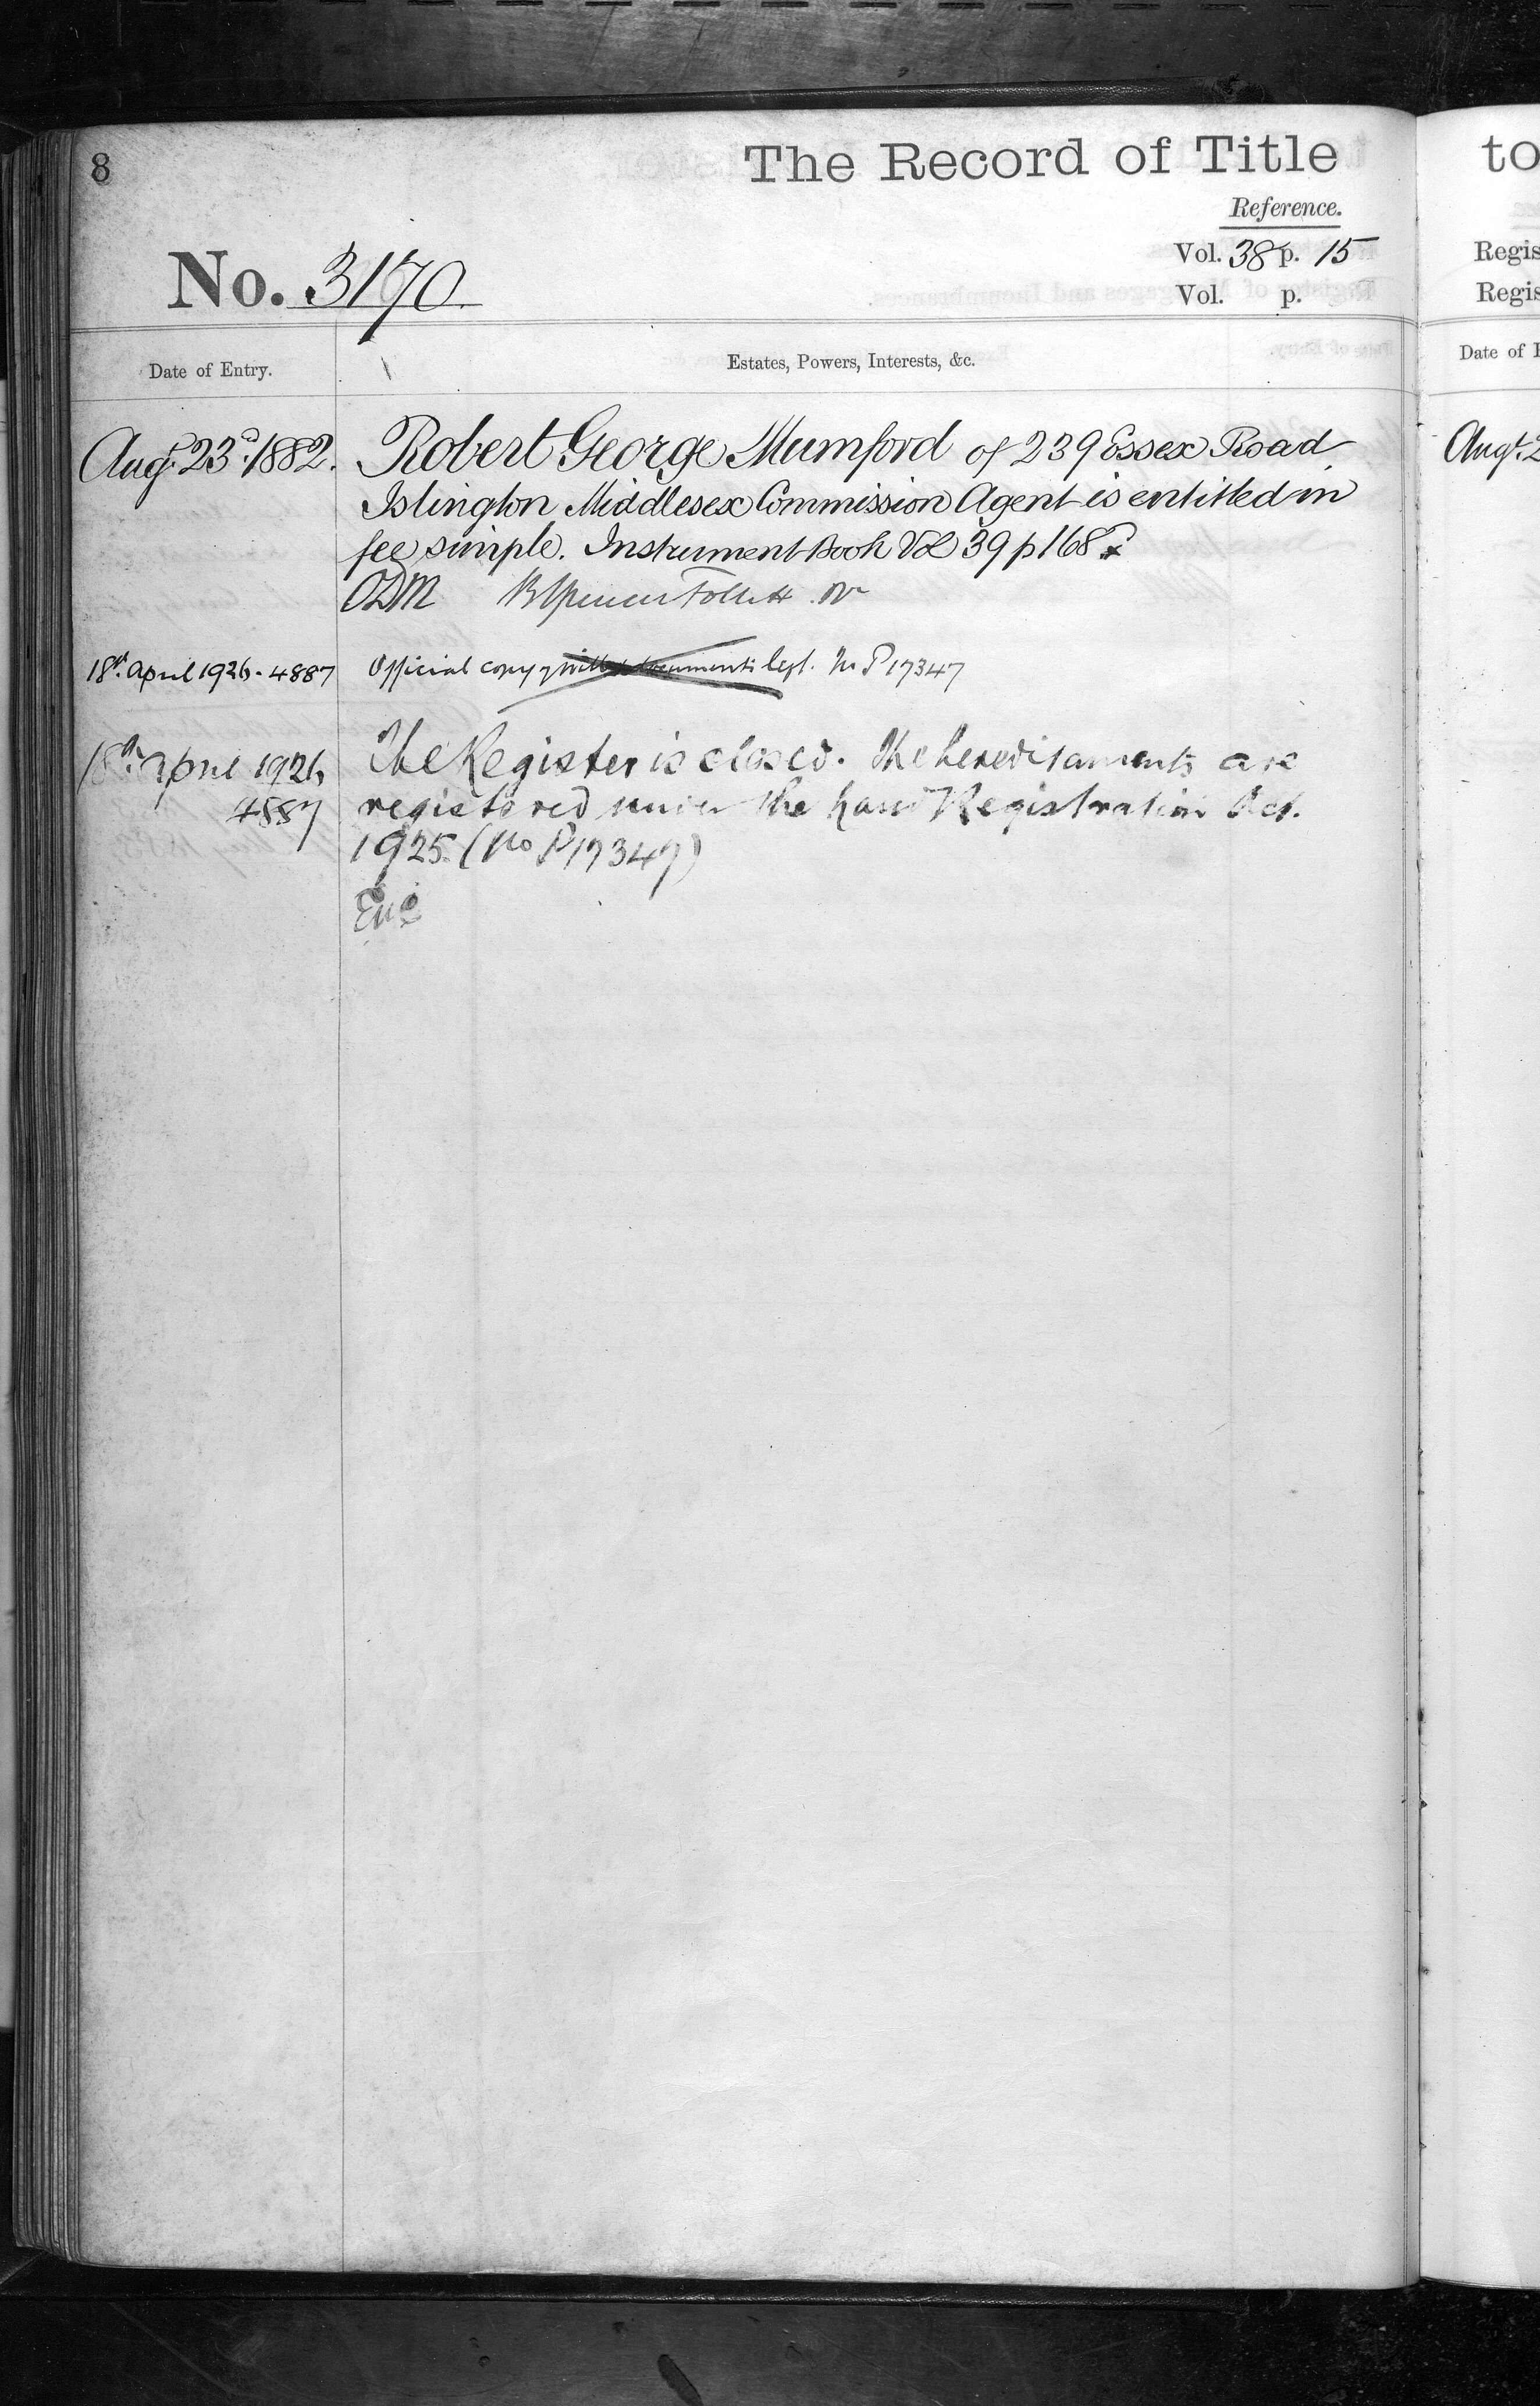 8
The Record of Title
Reference.
No. 3170
Vol. 38 p. 15
Vol. p.
Date of Entry.
Estates, Powers, Interests, &c.
Augt. 23d. 1882.
Robert George Mumford of 239 Essex Road
Islington Middlesex Commission Agent is entitled in
fee simple. Instrument Book Vol 39 p 168
ODM
18th. April 1926. 4887
Official copy documents Dept. No P 17347
18th. April 1926
4887
The Register is closed. The hereditaments are
registered under the Land Registration Act.
1925. (No P17347)
to
Regis
Regis
Date of E
Augt. 2